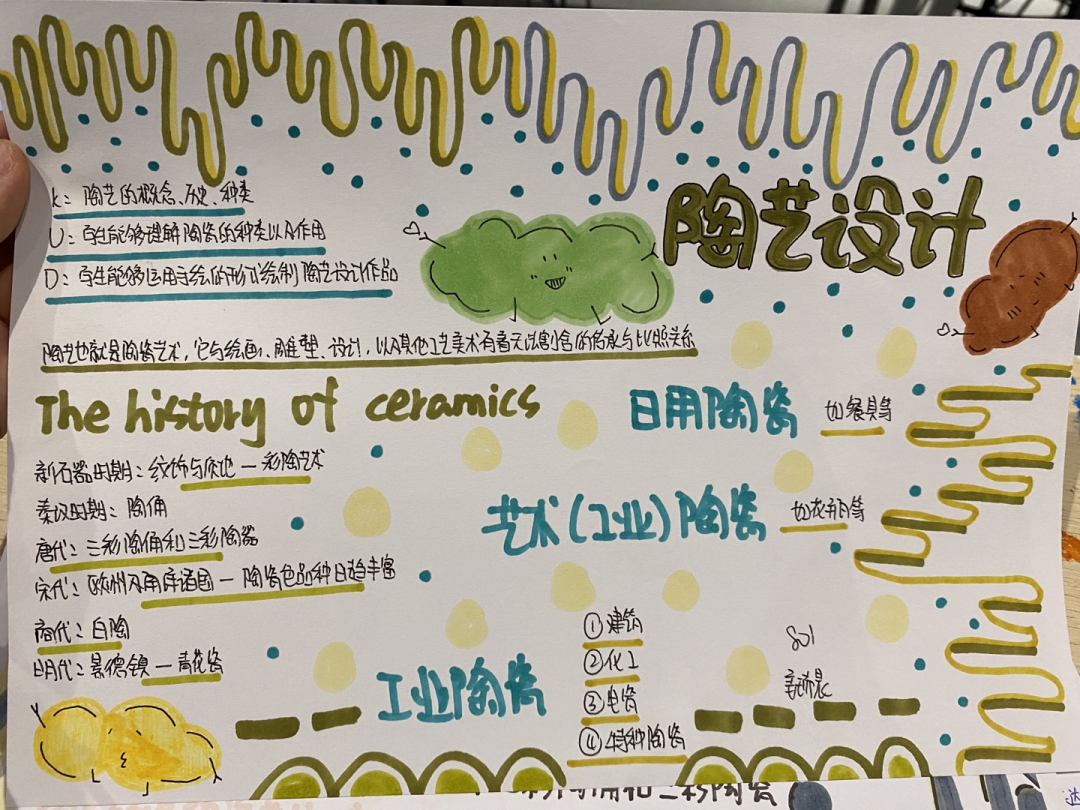 陶艺设计
K: 陶艺的概念、历史、种类
U: 学生能够理解陶瓷的种类以及作用
D: 学生能够运用手绘的形式绘制陶艺设计作品
陶艺也就是陶瓷艺术，它与绘画、雕塑、设计，以及其他工艺美术有着无法割舍的传承与比照关系
The history of ceramics
新石器时期：纹饰与质地—彩陶艺术
秦汉时期：陶俑
唐代：三彩陶俑和三彩陶器
宋代：欧州及南洋诸国—陶瓷色品种日趋丰富
商代：白陶
明代：景德镇—青花瓷
日用陶瓷 如餐具等
艺术(工业)陶瓷 如花瓶等
工业陶瓷
①建筑
②化工
③电瓷
④特种陶瓷
801